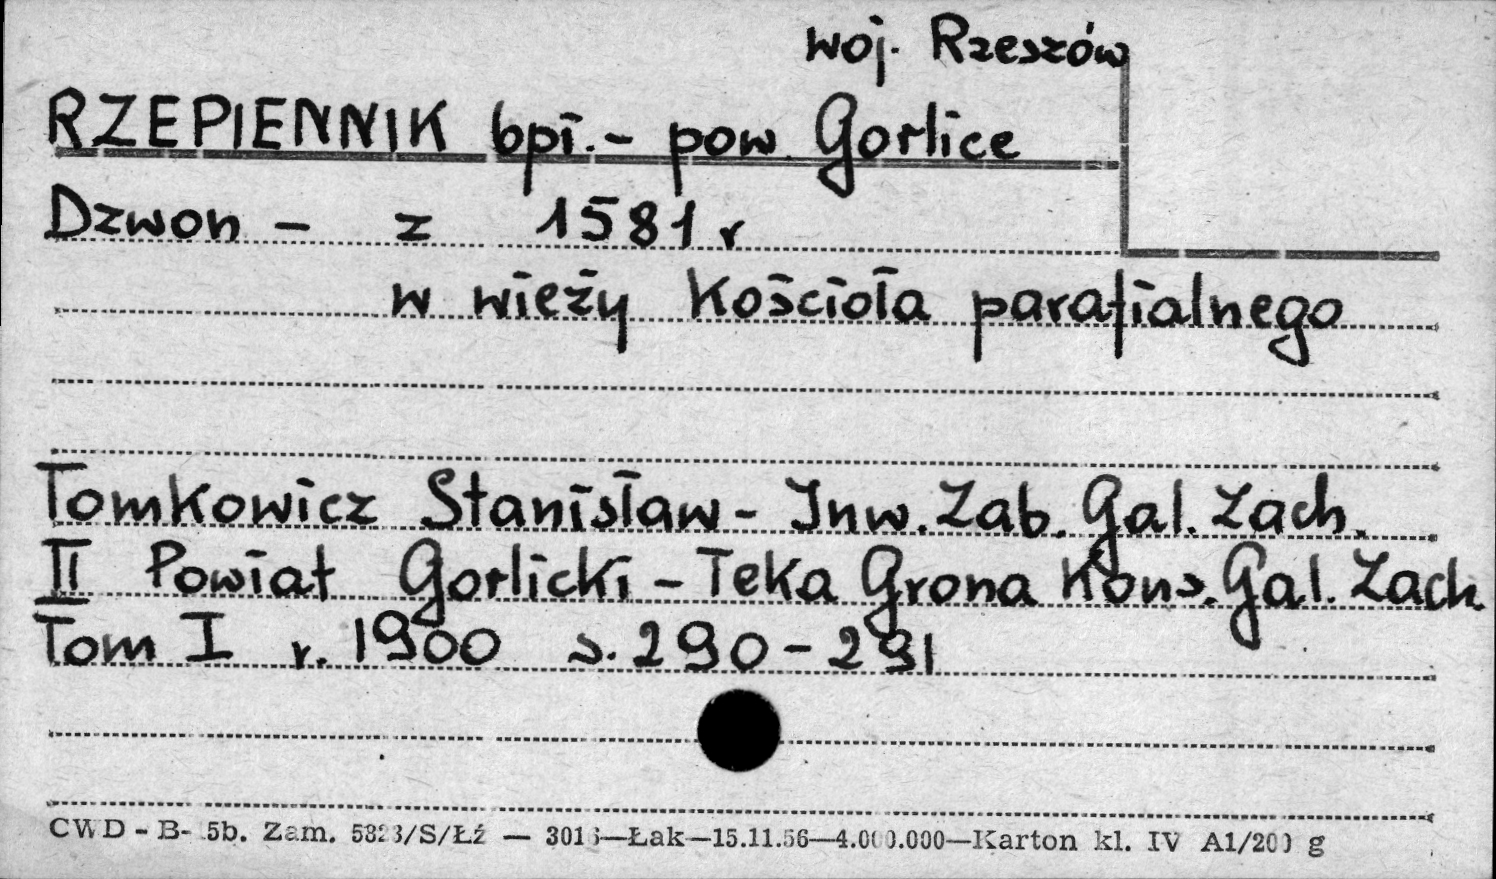 woj. Rzeszów
RZEPIENNIK bpi. - pow. Gorlice
Dzwon - z 1581 r
w wieży Kościoła parafialnego
Tomkowicz Stanisław - Inw. Zab. Gal. Zach.
II Powiat Gorlicki - Teka Grona Kons. Gal. Zach.
Tom I r. 1900 s. 290-291
CWD - B- 5b. Zam. 5823/S/Łź — 3013—Łak—15.11.56—4.000.000—Karton kl. IV A1/200 g